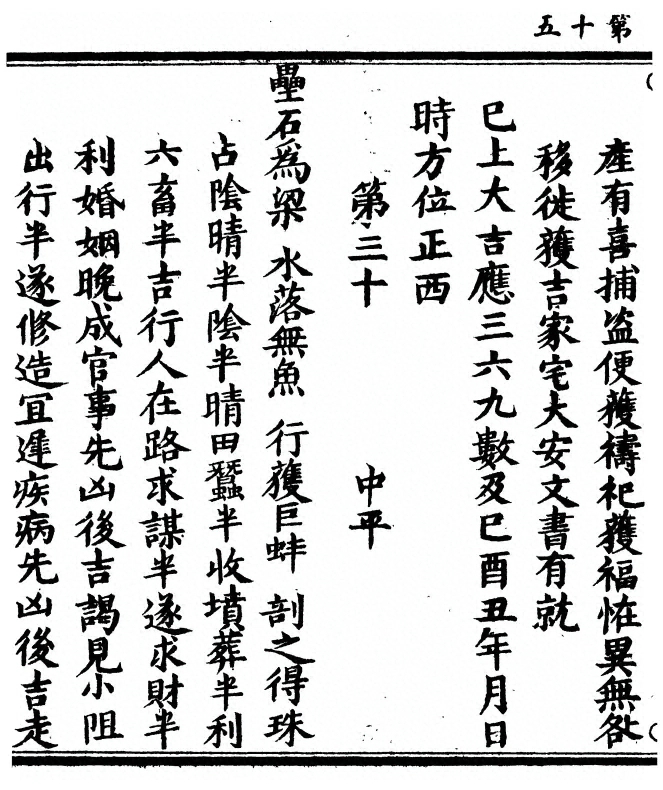 第十五
產有喜捕盜便獲禱祀獲福恠異無咎
移徙獲吉家宅大安文書有就
巳上大吉應三六九數及巳酉丑年月日
時方位正西
第三十 中平
壘石為梁 水落無魚 行獲巨蚌 剖之得珠
占陰晴半陰半晴田蠶半收墳葬半利
六畜半吉行人在路求謀半遂求財半
利婚姻晚成官事先凶後吉謁見小阻
出行半遂修造宜遲疾病先凶後吉走